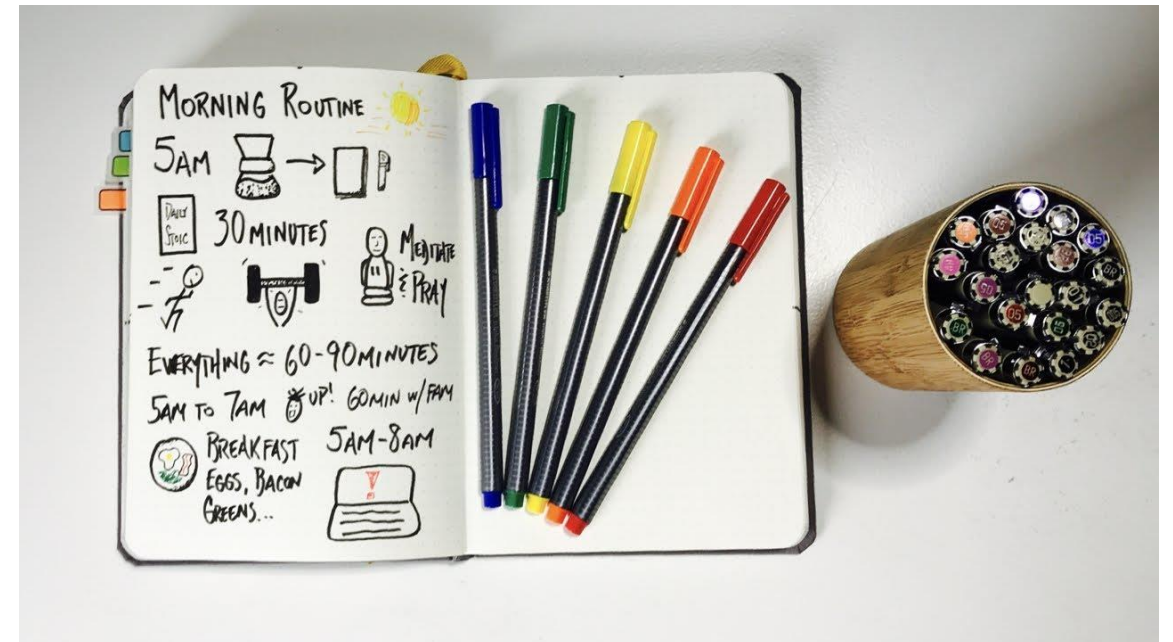 MORNING ROUTINE
5AM
DAILY
STOIC
30 MINUTES
MEDITATE
& PRAY
EVERYTHING ≈ 60-90 MINUTES
5AM TO 7AM UP! 60MIN W/FAM
BREAKFAST 5AM-8AM
EGGS, BACON
GREENS...
!
05
05
BR
05
05
05
BR
BR
BR